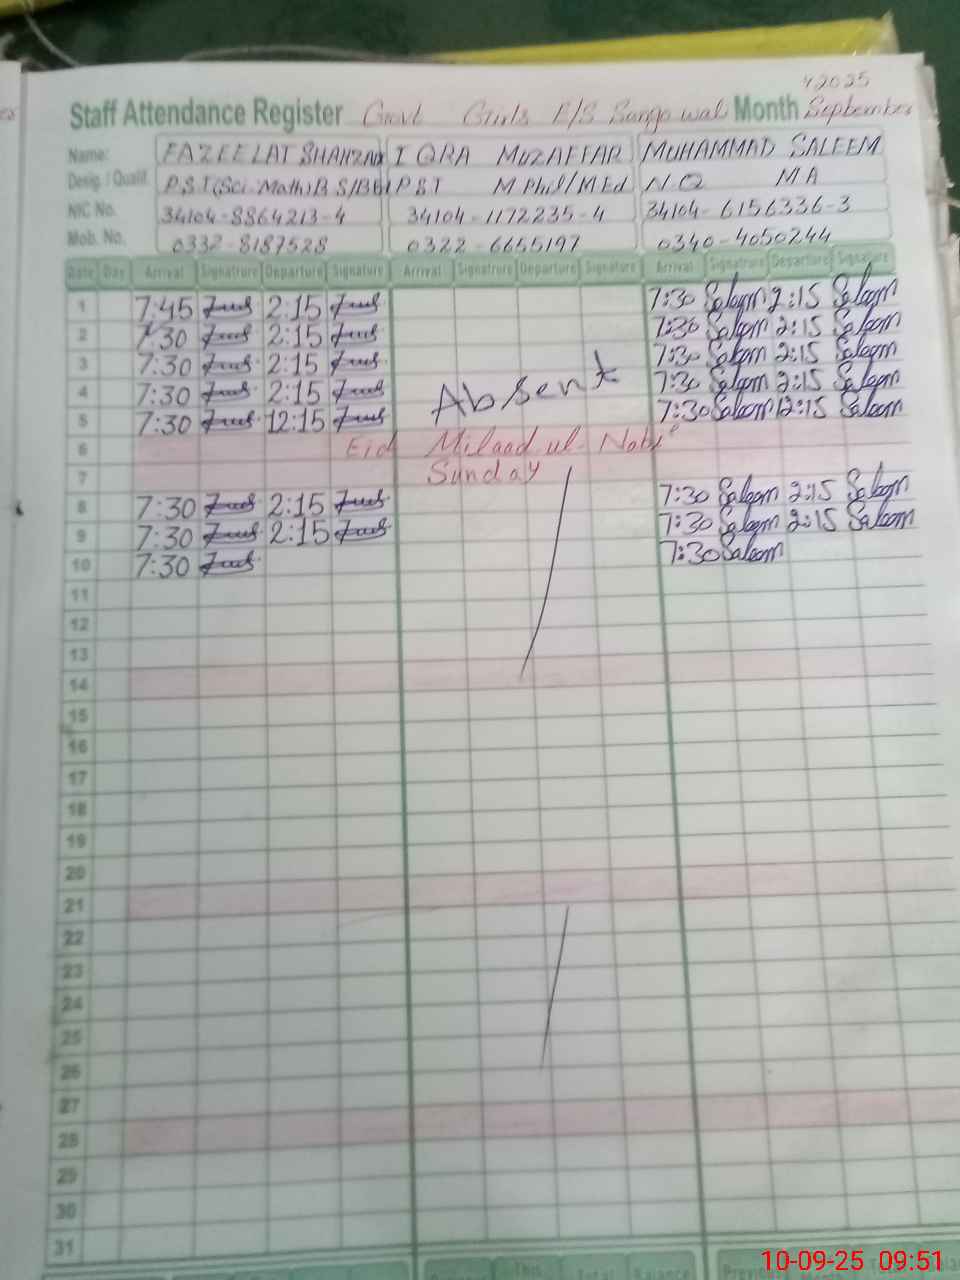 Y 2025
Staff Attendance Register Govt Girls E/S Sango wal Month September
Name: FAZEELAT SHAHZAD IQRA MUZAFFAR MUHAMMAD SALEEM
Desig. / Qualif. P.S.T(Sci-Math) B.S/BEd P.S.T M Phil/M.Ed N.Q MA
NIC No. 34104-8864213-4 34104-1172235-4 34104-6156336-3
Mob. No. 0332-8187528 0322-6655197 0340-4050244
Date Day Arrival Signatrure Departure Signature Arrival Signatrure Departure Signature Arrival Signatrure Departure Signature
1 7:45 2:15 7:30 Saleem 2:15 Saleem
2 7:30 2:15 7:30 Saleem 2:15 Saleem
3 7:30 2:15 7:30 Saleem 2:15 Saleem
4 7:30 2:15 Absent 7:30 Saleem 2:15 Saleem
5 7:30 12:15 7:30 Saleem 12:15 Saleem
6 Eid Milaad ul- Nabi
7 Sunday
8 7:30 2:15 7:30 Saleem 2:15 Saleem
9 7:30 2:15 7:30 Saleem 2:15 Saleem
10 7:30 7:30 Saleem
11
12
13
14
15
16
17
18
19
20
21
22
23
24
25
26
27
28
29
30
31
This Total Balance Previous
10-09-25 09:51